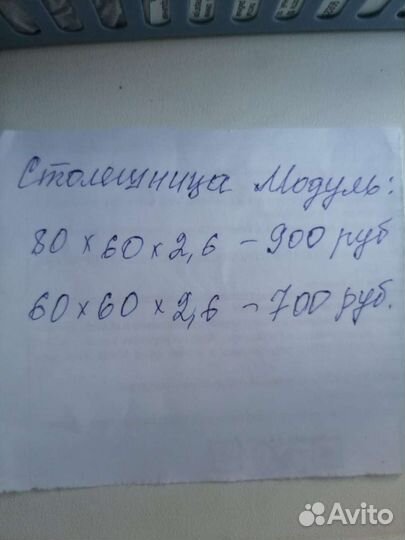 Столешница Модуль:
80 x 60 x 2,6 - 900 руб
60 x 60 x 2,6 - 700 руб.
Avito